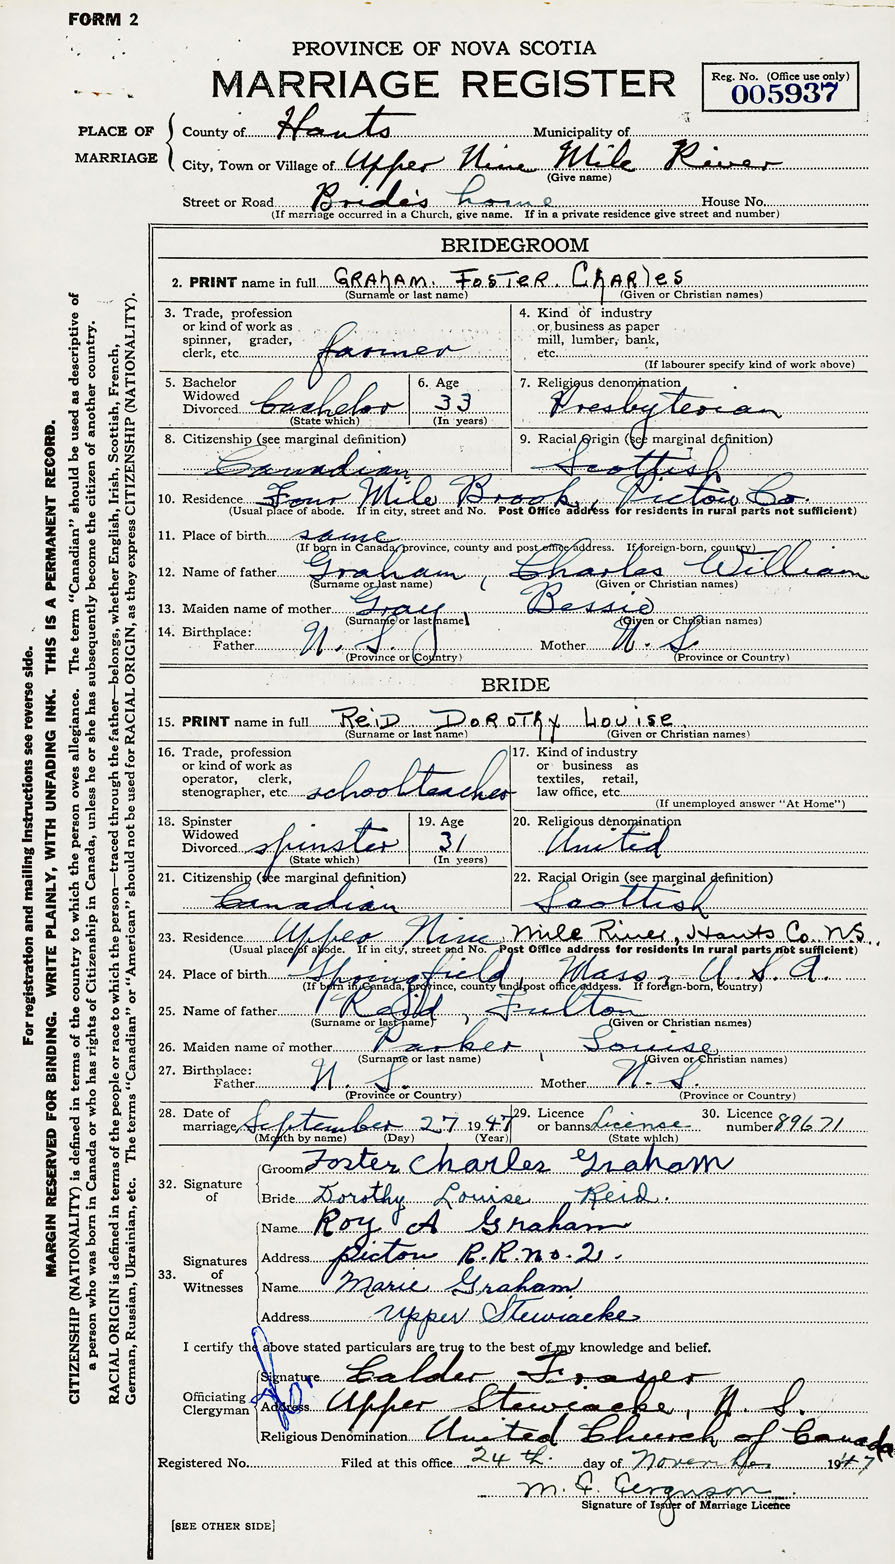 FORM 2
PROVINCE OF NOVA SCOTIA
MARRIAGE REGISTER
Reg. No. (Office use only)
005937
PLACE OF MARRIAGE
County of Hants Municipality of
City, Town or Village of Upper Nine Mile River
(Give name)
Street or Road Bride's home House No.
(If marriage occurred in a Church, give name. If in a private residence give street and number)
BRIDEGROOM
2. PRINT name in full GRAHAM. FOSTER. CHARLES
(Surname or last name) (Given or Christian names)
3. Trade, profession or kind of work as spinner, grader, clerk, etc. farmer
4. Kind of industry or business as paper mill, lumber, bank, etc.
(If labourer specify kind of work above)
5. Bachelor Widowed Divorced bachelor
(State which)
6. Age 33
(In years)
7. Religious denomination Presbyterian
8. Citizenship (see marginal definition) Canadian
9. Racial Origin (see marginal definition) Scottish
10. Residence Four Mile Brook, Pictou Co.
(Usual place of abode. If in city, street and No. Post Office address for residents in rural parts not sufficient)
11. Place of birth same
(If born in Canada, province, county and post office address. If foreign-born, country)
12. Name of father Graham, Charles William
(Surname or last name) (Given or Christian names)
13. Maiden name of mother Gray, Bessie
(Surname or last name) (Given or Christian names)
14. Birthplace: Father N. S. Mother N. S.
(Province or Country) (Province or Country)
BRIDE
15. PRINT name in full REID DOROTHY LOUISE
(Surname or last name) (Given or Christian names)
16. Trade, profession or kind of work as operator, clerk, stenographer, etc. schoolteacher
17. Kind of industry or business as textiles, retail, law office, etc.
(If unemployed answer "At Home")
18. Spinster Widowed Divorced spinster
(State which)
19. Age 31
(In years)
20. Religious denomination United
21. Citizenship (see marginal definition) Canadian
22. Racial Origin (see marginal definition) Scottish
23. Residence Upper Nine Mile River, Hants Co. N.S.
(Usual place of abode. If in city, street and No. Post Office address for residents in rural parts not sufficient)
24. Place of birth Springfield, Mass, U.S.A.
(If born in Canada, province, county and post office address. If foreign-born, country)
25. Name of father Reid, Fulton
(Surname or last name) (Given or Christian names)
26. Maiden name of mother Parker Louise
(Surname or last name) (Given or Christian names)
27. Birthplace: Father N. S. Mother N. S.
(Province or Country) (Province or Country)
28. Date of marriage September 27 1947
(Month by name) (Day) (Year)
29. Licence or banns License
(State which)
30. Licence number 89671
32. Signature of
Groom Foster Charles Graham
Bride Dorothy Louise Reid.
33. Signatures of Witnesses
Name Roy A Graham
Address Pictou R.R. no. 2.
Name Marie Graham
Address Upper Stewiacke
I certify the above stated particulars are true to the best of my knowledge and belief.
Officiating Clergyman
Signature Calder Fraser
Address Upper Stewiacke, N. S.
Religious Denomination United Church of Canada
Registered No. Filed at this office 24th. day of November 1947
Ferguson
Signature of Issuer of Marriage Licence
[SEE OTHER SIDE]
For registration and mailing instructions see reverse side.
MARGIN RESERVED FOR BINDING. WRITE PLAINLY, WITH UNFADING INK. THIS IS A PERMANENT RECORD.
CITIZENSHIP (NATIONALITY) is defined in terms of the country to which the person owes allegiance. The term "Canadian" should be used as descriptive of
a person who was born in Canada or who has rights of Citizenship in Canada, unless he or she has subsequently become the citizen of another country.
RACIAL ORIGIN is defined in terms of the people or race to which the person—traced through the father—belongs, whether English, Irish, Scottish, French,
German, Russian, Ukrainian, etc. The terms "Canadian" or "American" should not be used for RACIAL ORIGIN, as they express CITIZENSHIP (NATIONALITY).